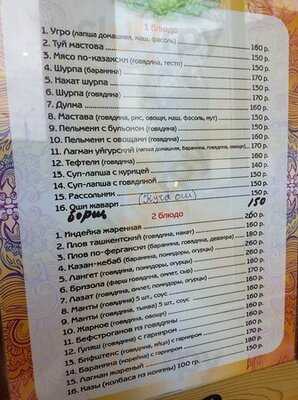 1 блюдо
1. Угро (лапша домашняя, маш, фасоль)
2. Туй мастова 160 р.
3. Мясо по-казахски (говядина, тесто) 160 р.
4. Шурпа (баранина) 150 р.
5. Нахат шурпа 150 р.
6. Шурпа (говядина) 170 р.
7. Дулма 150 р.
8. Мастава (говядина, рис, овощи, маш, фасоль, нут) 160 р.
9. Пельмени с бульоном (говядина) 150 р.
10. Пельмени с овощами (говядина) 150 р.
11. Лагман уйгурский 160 р.
12. Тефтели (говядина) 170 р.
13. Суп-лапша с курицей 140 р.
14. Суп-лапша с говядиной 150 р.
15. Рассольник 150 р.
16. Оши жаварп (Куча ош) 150
Борщ
2 блюдо
1. Индейка жаренная 260 р.
2. Плов ташкентский (говядина, нахат) 160 р.
3. Плов по-фергански (баранина, говядина, девзира)
4. Казан-кебаб (баранина, помидоры, огурцы)
5. Лангет (говядина, помидоры, огурцы)
6. Бризола (фарш говядина, омлет, сыр)
7. Лазат (говядина, помидоры, огурцы)
8. Манты (говядина) 5 шт., соус
9. Манты (говядина, тыква) 5 шт., соус
10. Жаркое (говядина, овощи)
11. Бефстроганы из говядины
12. Гуляш (говядина) с гарниром
13. Бифштекс (говядина, яйца) с гарниром
14. Бараний (корейка) с гарниром
15. Лагман жареный
16. Казы (колбаса из конины) 100 гр.